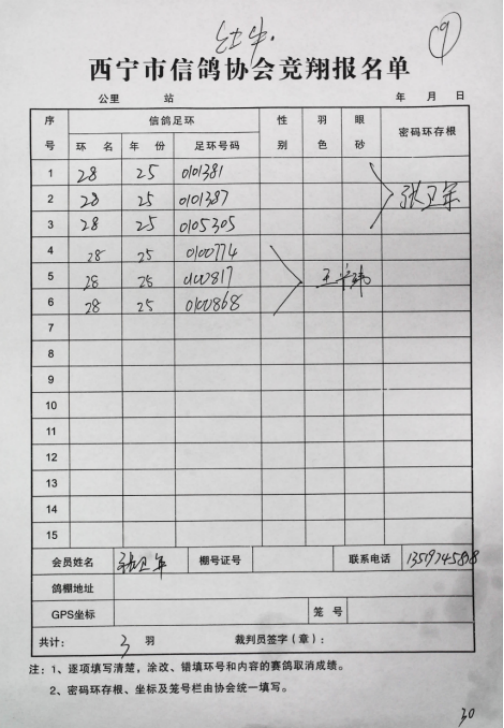 红牛.
⑨
西宁市信鸽协会竞翔报名单
公里 站 年 月 日
序号 信鸽足环 性别 羽色 眼砂 密码环存根
环 名 年 份 足环号码
1 28 25 0101381
2 28 25 0101387 张卫军
3 28 25 0105305
4 28 25 0100774
5 28 25 0100817 王
6 28 25 0100868
7
8
9
10
11
12
13
14
15
会员姓名 张卫军 棚号证号 联系电话
鸽棚地址
GPS坐标 笼 号
共计: 3 羽 裁判员签字(章):
注:1、逐项填写清楚,涂改、错填环号和内容的赛鸽取消成绩。
2、密码环存根、坐标及笼号栏由协会统一填写。
30